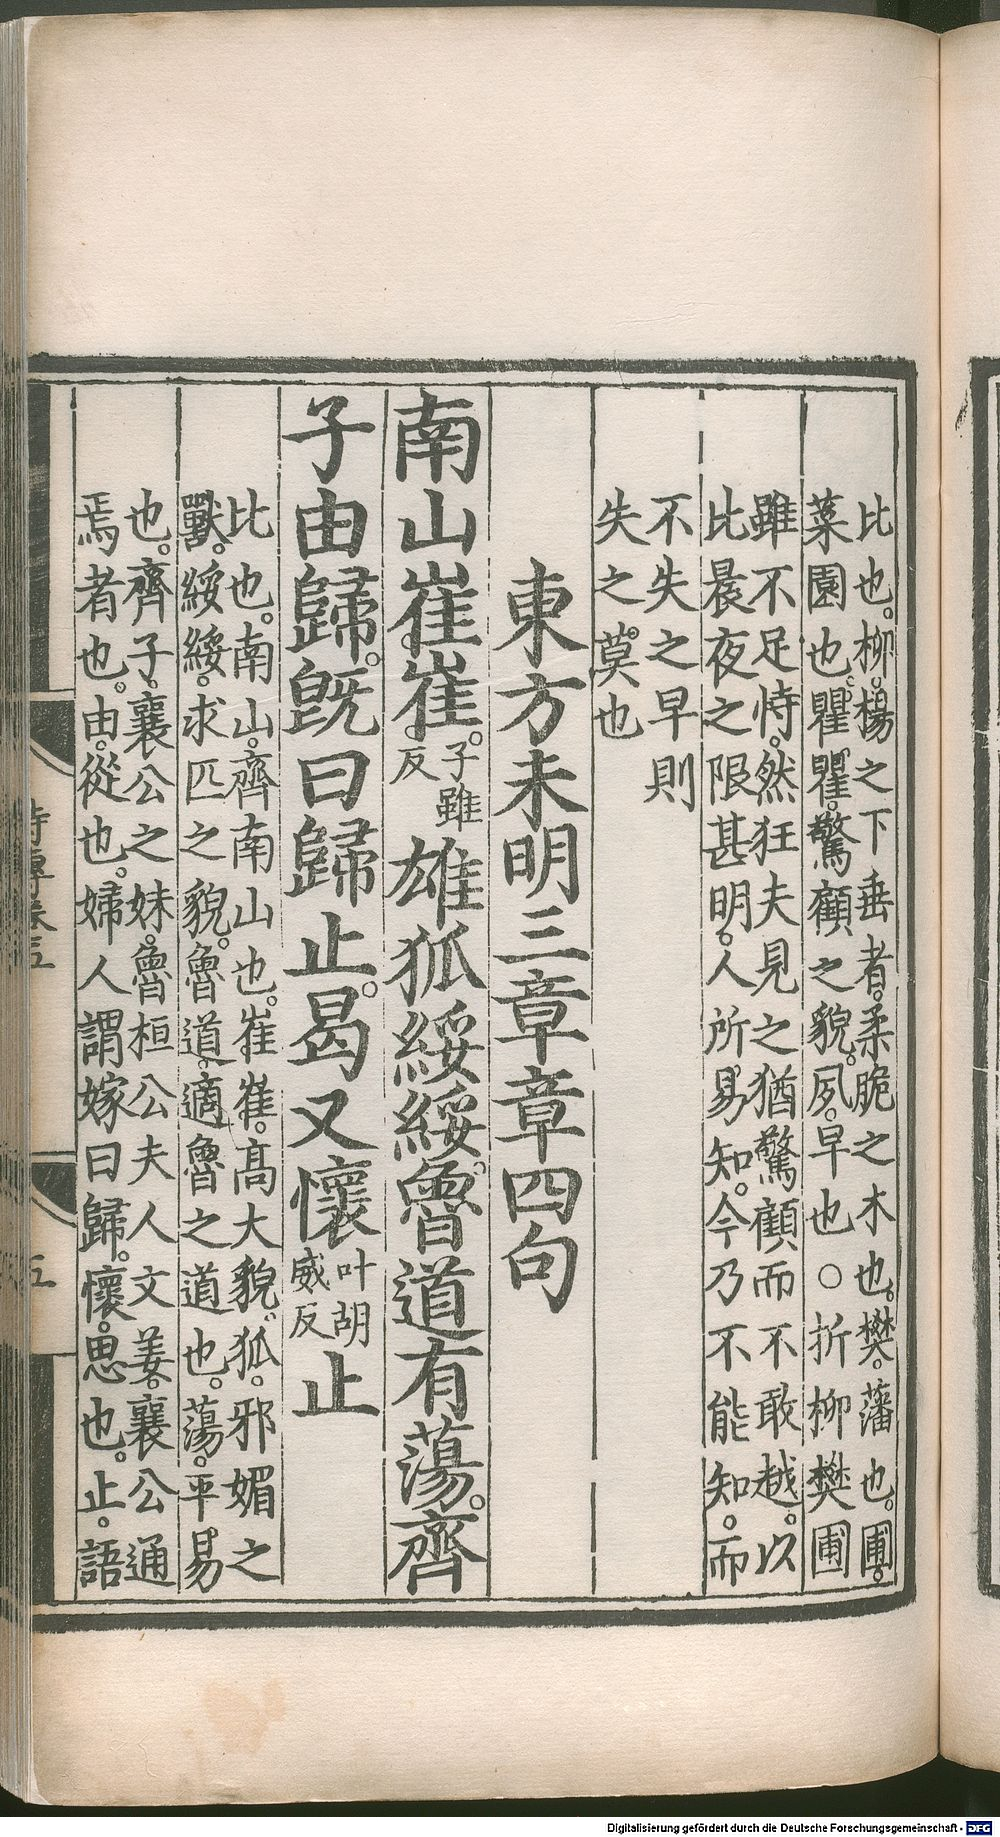 比也。柳。楊之下垂者。柔脆之木也。樊。藩也。圃。
菜園也。瞿瞿。驚顧之貌。夙。早也○折柳樊圃
雖不足恃。然狂夫見之。猶驚顧而不敢越。以
比晨夜之限甚明。人所易知。今乃不能知。而
不失之早則
失之莫也
東方未明三章章四句
南山崔崔。子雖反雄狐綏綏。魯道有蕩。齊
子由歸。旣曰歸止。曷又懷叶胡威反止
比也。南山。齊南山也。崔崔。高大貌。狐。邪媚之
獸。綏綏。求匹之貌。魯道。適魯之道也。蕩。平易
也。齊子。襄公之妹。魯桓公夫人文姜。襄公通
焉者也。由。從也。婦人謂嫁曰歸。懷。思也。止。語
詩傳卷五
五
Digitalisierung gefördert durch die Deutsche Forschungsgemeinschaft - DFG